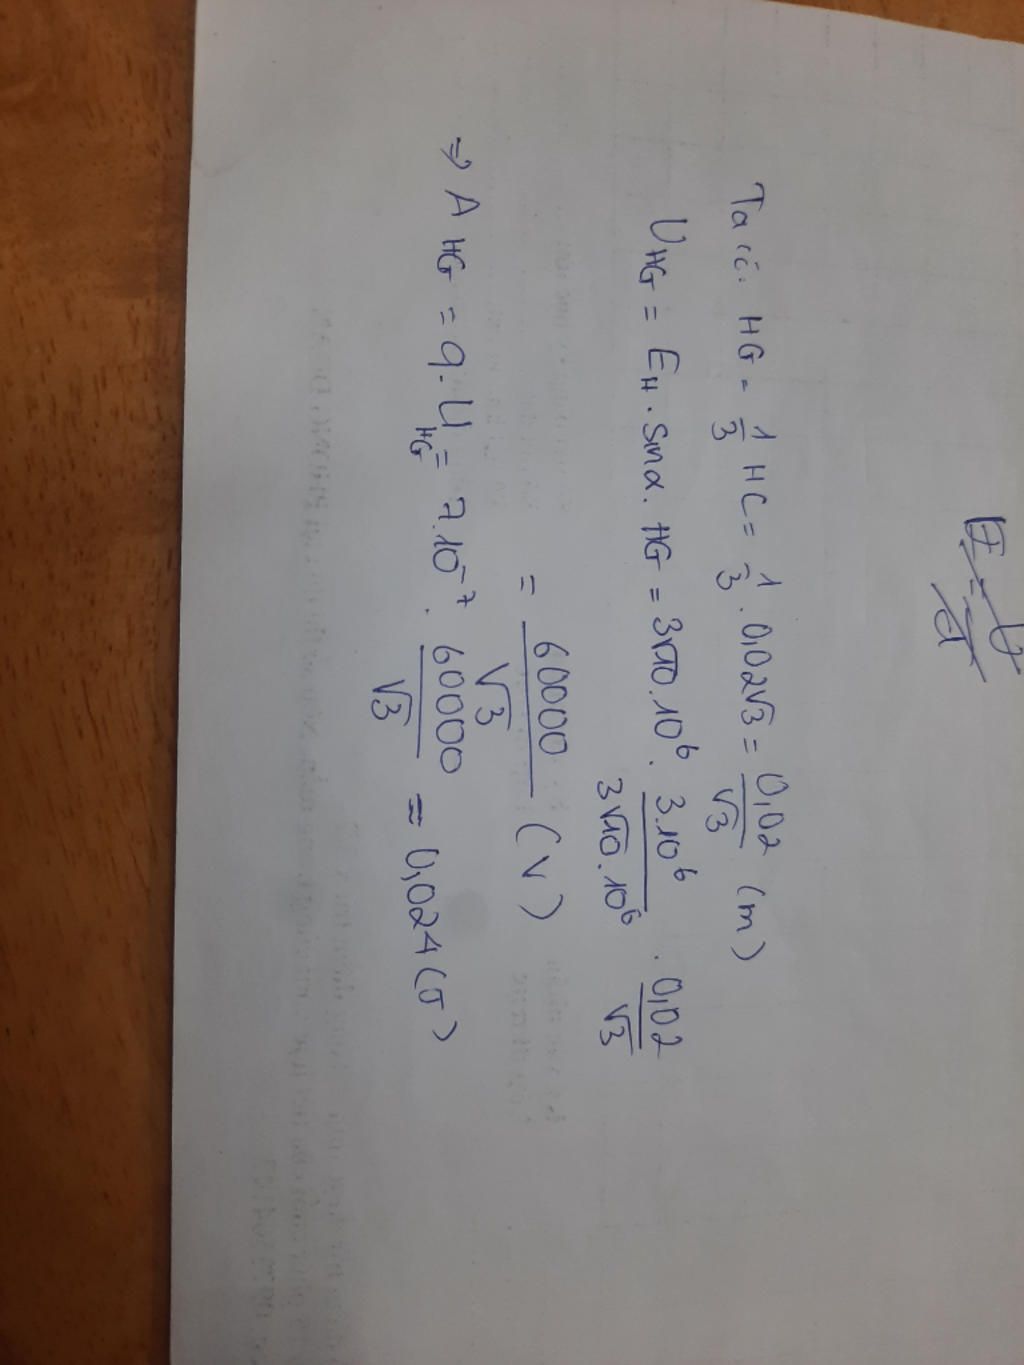 E = U/d
Ta có: HG = 1/3 HC = 1/3 . 0,02√3 = 0,02/√3 (m)
U_HG = E_H . sinα . HG = 3√10.10⁶ . 3.10⁶/3√10.10⁶ . 0,02/√3
= 60000/√3 (V)
⇒ A_HG = q.U_HG = 7.10⁻⁷ . 60000/√3 = 0,024 (J)